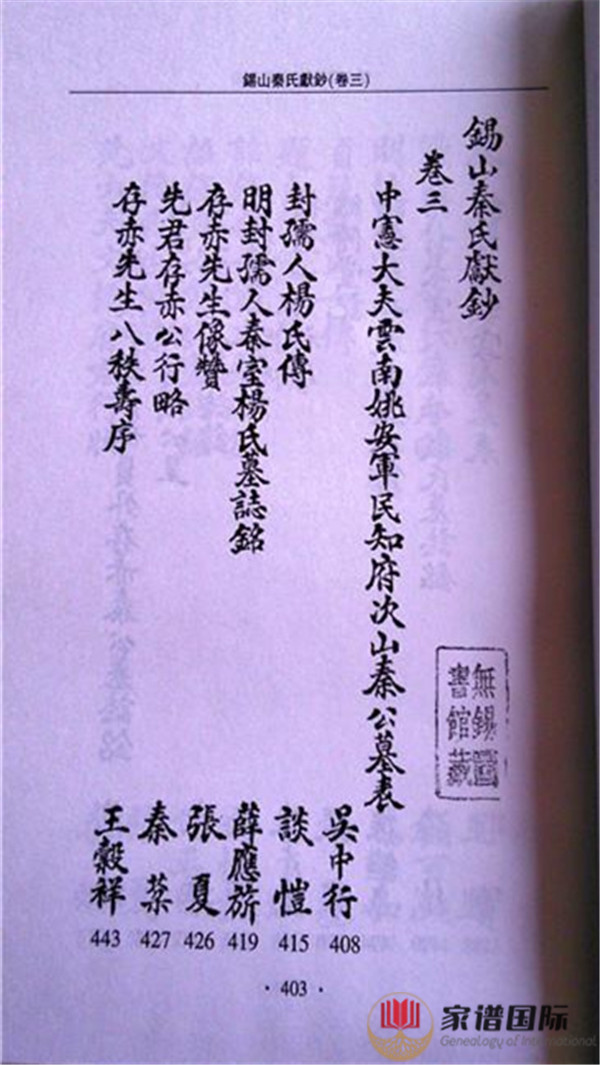 錫山秦氏獻鈔(卷三)
錫山秦氏獻鈔
卷三
中憲大夫雲南姚安軍民知府次山秦公墓表 吳中行 408
封孺人楊氏傳 談愷 415
明封孺人秦室楊氏墓誌銘 薛應旂 419
存赤先生像贊 張夏 426
先君存赤公行略 秦 427
存赤先生八秩壽序 王穀祥 443
無錫圖
書館藏
· 403 ·
家谱国际
Genealogy of International